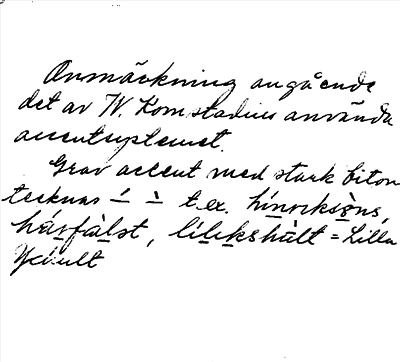 Anmärkning angående
det av W. Komstadius använda
accentsystemet.
Grav accent med stark biton
tecknas ´ ` t.ex. hínriksòns,
hárfàlst, lílikshùlt = Lilla